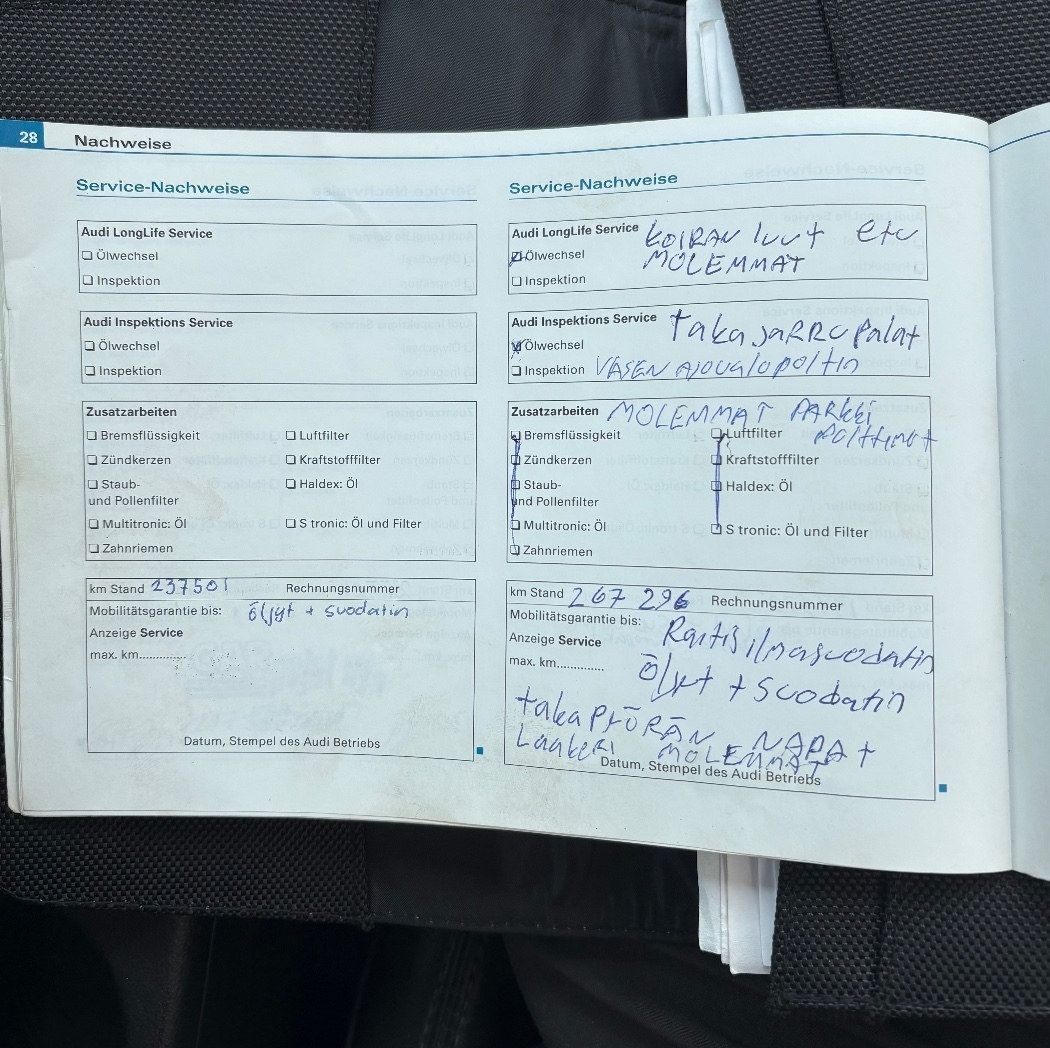 28 Nachweise
Service-Nachweise
Audi LongLife Service
❏ Ölwechsel
❏ Inspektion
Audi Inspektions Service
❏ Ölwechsel
❏ Inspektion
Zusatzarbeiten
❏ Bremsflüssigkeit ❏ Luftfilter
❏ Zündkerzen ❏ Kraftstofffilter
❏ Staub- ❏ Haldex: Öl
und Pollenfilter
❏ Multitronic: Öl ❏ S tronic: Öl und Filter
❏ Zahnriemen
km Stand 237501 Rechnungsnummer
Mobilitätsgarantie bis: öljyt + suodatin
Anzeige Service
max. km..............
Datum, Stempel des Audi Betriebs
Service-Nachweise
Audi LongLife Service KOIRAN luut etc
Ölwechsel MOLEMMAT
❏ Inspektion
Audi Inspektions Service takajarrupalat
Ölwechsel
❏ Inspektion VASEN AJOvalopoltin
Zusatzarbeiten MOLEMMAT PARkki
❏ Bremsflüssigkeit ❏ Luftfilter polttimot
❏ Zündkerzen ❏ Kraftstofffilter
❏ Staub- ❏ Haldex: Öl
und Pollenfilter
❏ Multitronic: Öl ❏ S tronic: Öl und Filter
❏ Zahnriemen
km Stand 267 296 Rechnungsnummer
Mobilitätsgarantie bis:
Anzeige Service Raitisilmasuodatin
max. km.............. Öljyt + Suodatin
takapyörän NAPAt
Laakeri MOLEMMAT
Datum, Stempel des Audi Betriebs